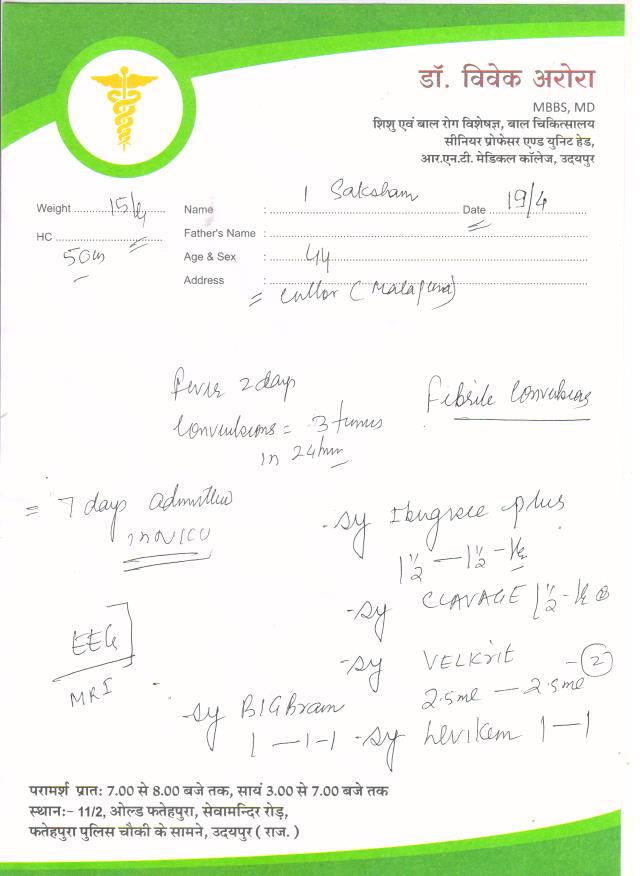 डॉ. विवेक अरोरा
MBBS, MD
शिशु एवं बाल रोग विशेषज्ञ, बाल चिकित्सालय
सीनियर प्रोफेसर एण्ड युनिट हेड,
आर.एन.टी. मेडिकल कॉलेज, उदयपुर
Weight 15 kg Name : Saksham Date 19/4
HC 50 cm Father's Name :
Age & Sex : 4y
Address :
Fever 2 day
Febrile Convulsions
Convulsions = 3 times
in 24 hrs
= 7 days admitted
in NICU
- sy Ibugrace plus
1 1/2 — 1 1/2 — 1 1/2
- sy CLAVAGE 1 1/2 - 1 1/2
EEG
MRI
- sy VELKRIT — 2
2.5 ml — 2.5 ml
- sy BIGBrain
1 — 1 - 1
- sy Levikem 1 — 1
परामर्श प्रातः 7.00 से 8.00 बजे तक, सायं 3.00 से 7.00 बजे तक
स्थान:- 11/2, ओल्ड फतेहपुरा, सेवामन्दिर रोड़,
फतेहपुरा पुलिस चौकी के सामने, उदयपुर ( राज. )